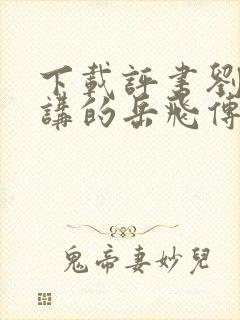 下載評書劉
講的岳飛傳
鬼帝妻妙兒